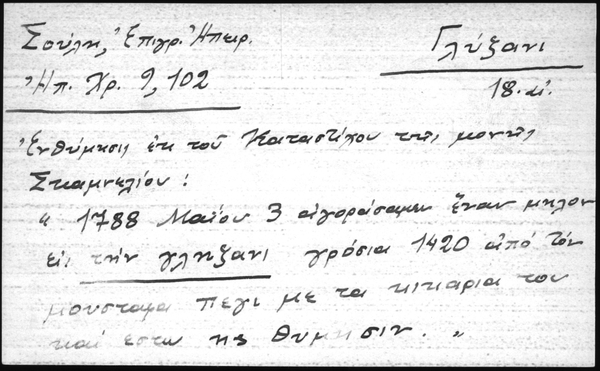 Σούλη, Ἐπιγρ. Ἠπειρ.
Γλύξανι
Ἠπ. Χρ. 9, 102
18. αἰ.
Ἐνθύμησις ἐκ τοῦ Καταστίχου τῆς μονῆς
Σταμνελίου :
" 1788 Μαΐου 3 αἰγοράσαμεν ἕναν μηλον
εἰς τὴν γληξανι γρόσια 1420 ἀπό τόν
μουσταφα πεγι με τα κικαρια του
καί εστω ης θυμησιν. "